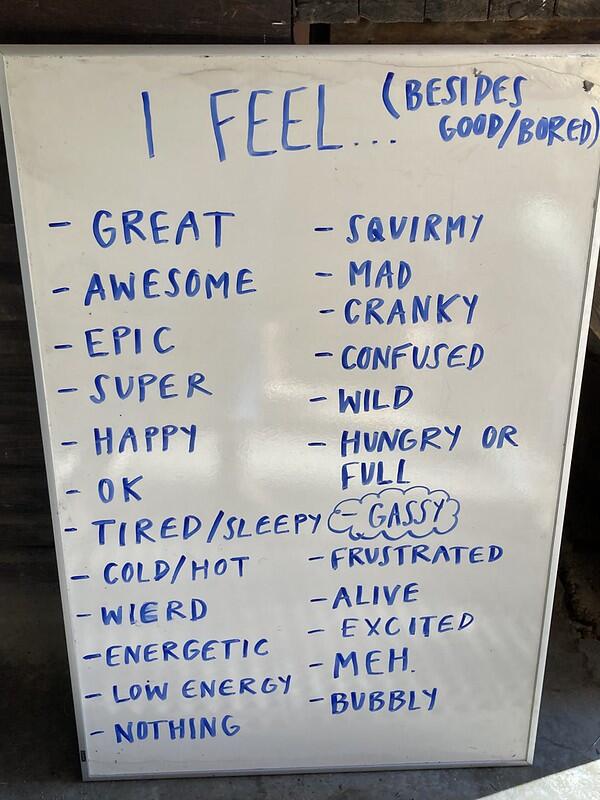 I FEEL... (BESIDES
GOOD/BORED)
- GREAT
- AWESOME
- EPIC
- SUPER
- HAPPY
- OK
- TIRED/SLEEPY
- COLD/HOT
- WIERD
- ENERGETIC
- LOW ENERGY
- NOTHING
- SQUIRMY
- MAD
- CRANKY
- CONFUSED
- WILD
- HUNGRY OR
FULL
- GASSY
- FRUSTRATED
- ALIVE
- EXCITED
- MEH.
- BUBBLY